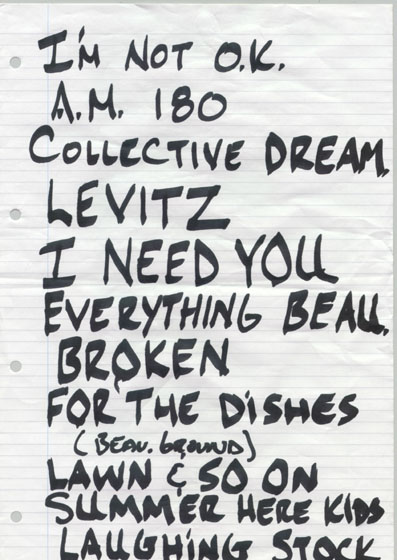 I'M NOT O.K.
A.M. 180
COLLECTIVE DREAM.
LEVITZ
I NEED YOU
EVERYTHING BEAU.
BROKEN
FOR THE DISHES
(BEAU. GROUND)
LAWN & SO ON
SUMMER HERE KIDS
LAUGHING STOCK